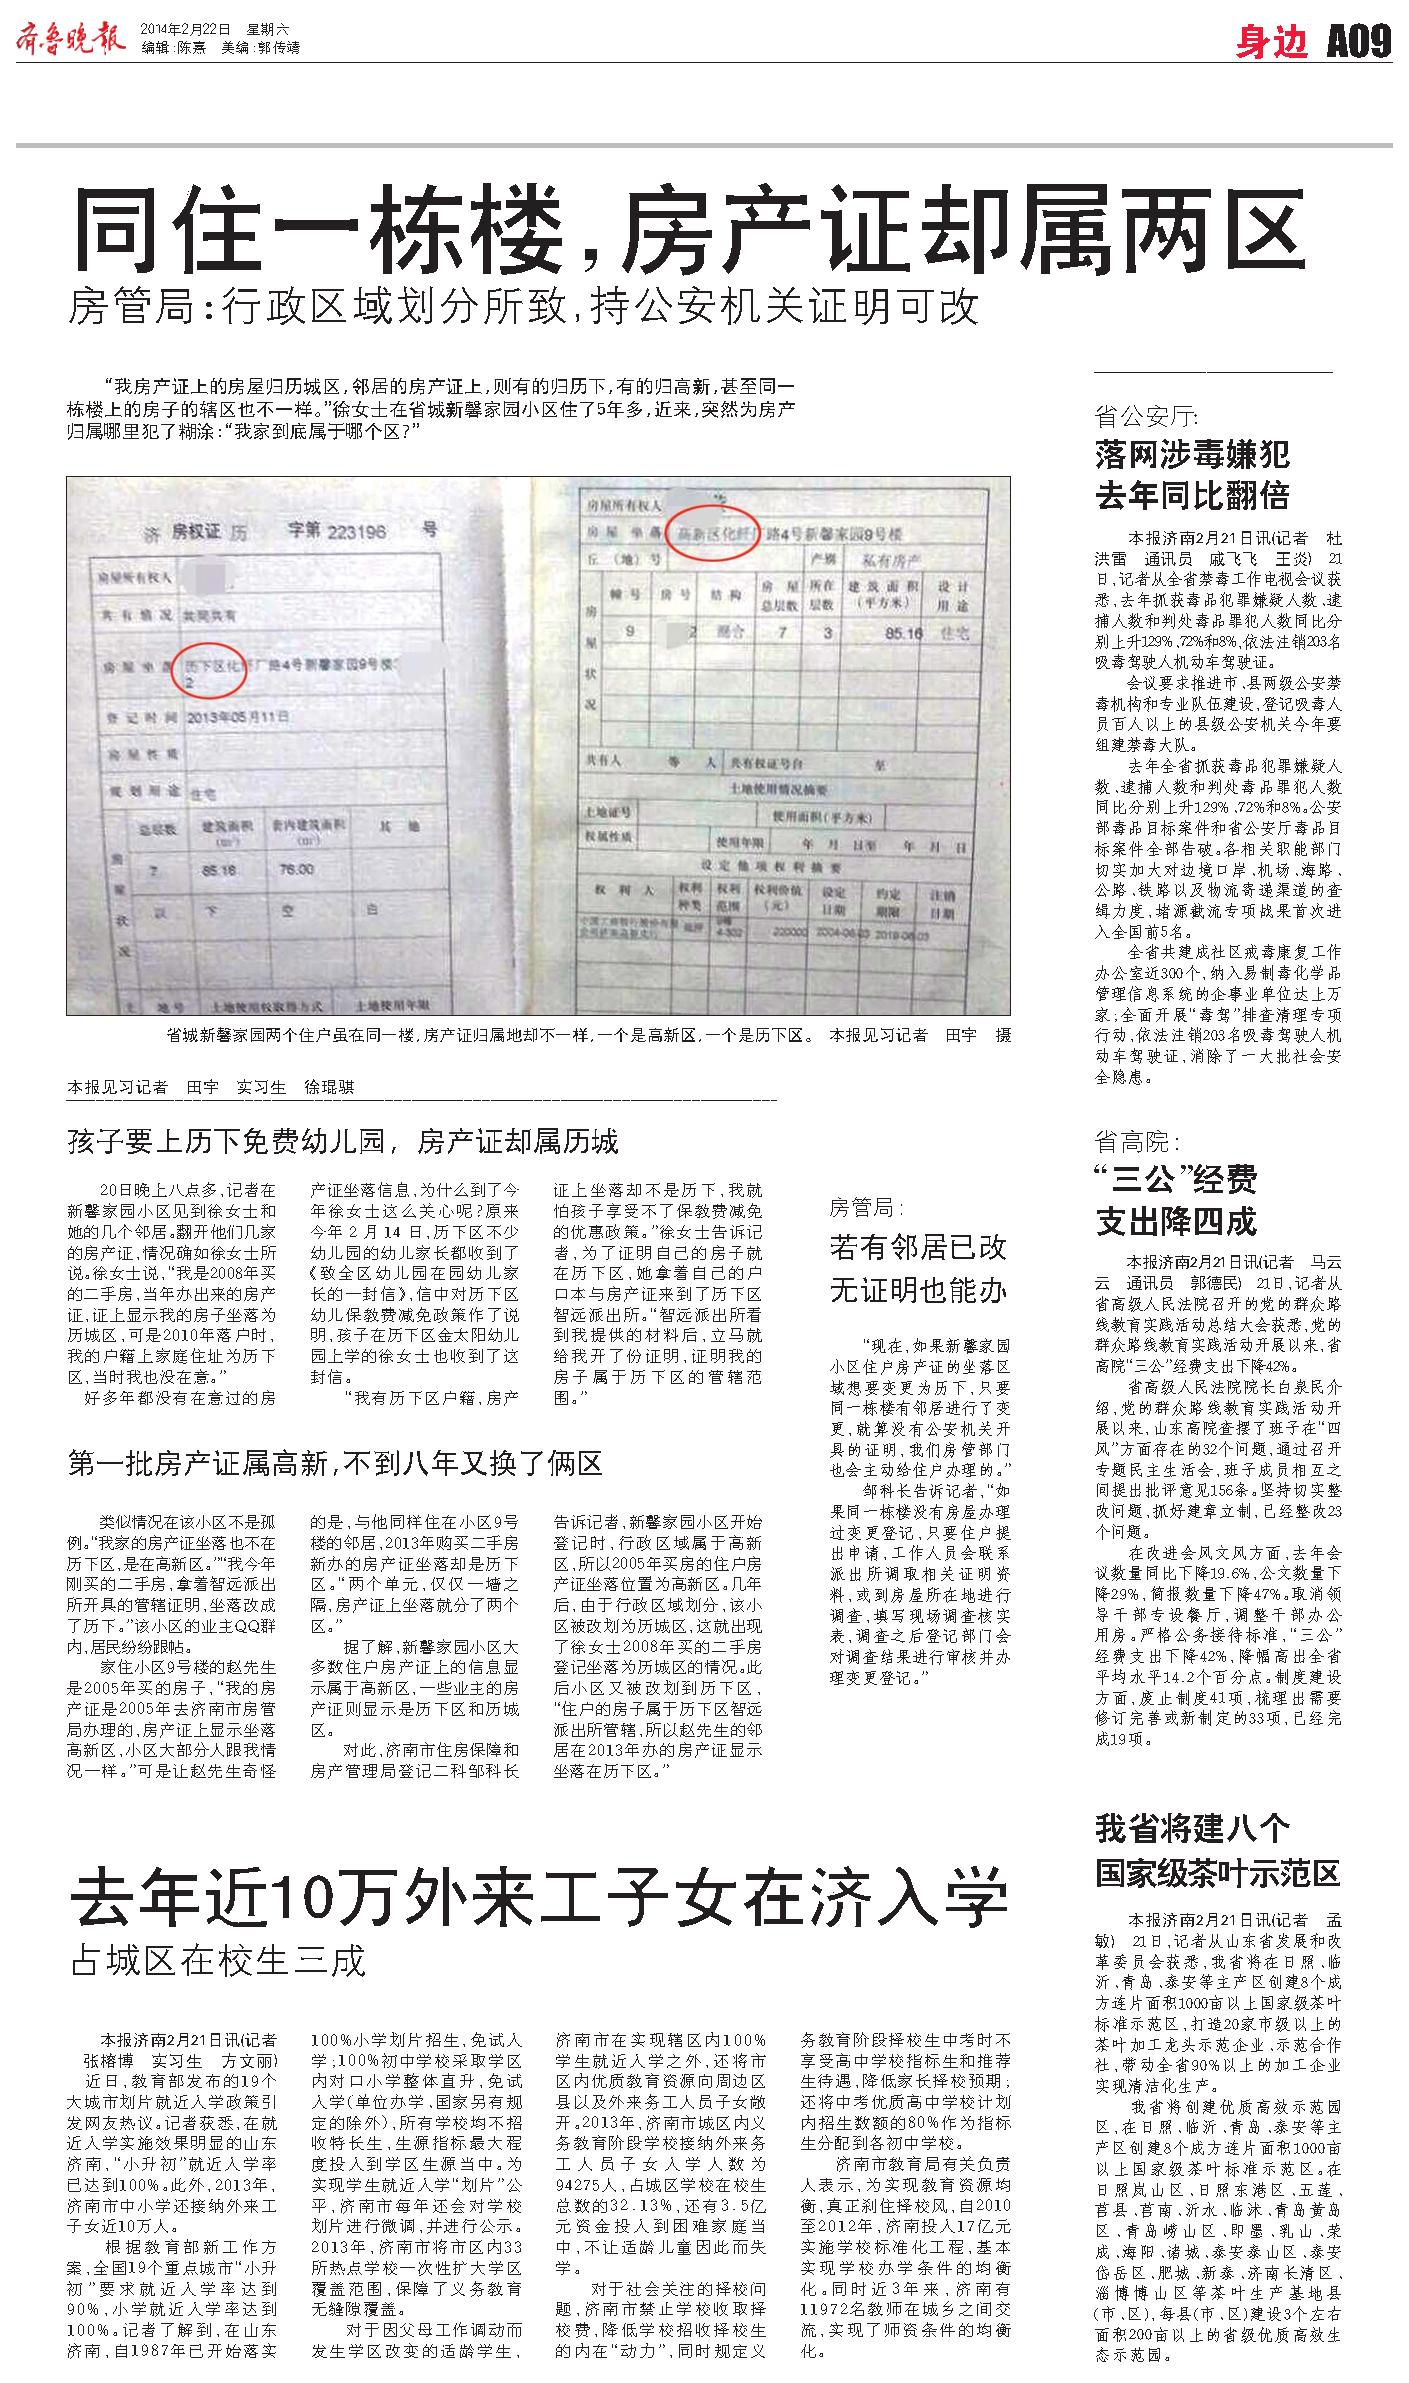 齐鲁晚报
2014年2月22日 星期六
编辑:陈熹 美编:郭传靖
身边 A09
同住一栋楼,房产证却属两区
房管局:行政区域划分所致,持公安机关证明可改
“我房产证上的房屋归历城区,邻居的房产证上,则有的归历下,有的归高新,甚至同一
栋楼上的房子的辖区也不一样。”徐女士在省城新馨家园小区住了5年多,近来,突然为房产
归属哪里犯了糊涂:“我家到底属于哪个区?”
济 房权证 历 字第 223196 号
房屋所有权人
共有情况 共同共有
房屋坐落 历下区化纤厂路4号新馨家园9号楼
2
登记时间 2013年05月11日
房屋性质
规划用途 住宅
总层数 建筑面积(m²) 套内建筑面积(m²) 其他
7 85.16 76.00
以下空白
房屋状况
土 地号 土地使用权取得方式 土地使用年限
房屋所有权人
房屋坐落 高新区化纤厂路4号新馨家园9号楼
丘(地)号 产别 私有房产
幢号 房号 结构 房屋总层数 所在层数 建筑面积(平方米) 设计用途
9 2 混合 7 3 85.16 住宅
房屋状况
共有人 等 人 共有权证号自 至
土地使用情况摘要
土地证号 使用面积(平方米)
权属性质 使用年限 年 月 日至 年 月 日
设定他项权利摘要
权利人 权利种类 权利范围 权利价值(元) 设定日期 约定期限 注销日期
省城新馨家园两个住户虽在同一楼,房产证归属地却不一样,一个是高新区,一个是历下区。 本报见习记者 田宇 摄
本报见习记者 田宇 实习生 徐琨骐
孩子要上历下免费幼儿园,房产证却属历城
20日晚上八点多,记者在
新馨家园小区见到徐女士和
她的几个邻居。翻开他们几家
的房产证,情况确如徐女士所
说。徐女士说,“我是2008年买
的二手房,当年办出来的房产
证,证上显示我的房子坐落为
历城区,可是2010年落户时,
我的户籍上家庭住址为历下
区,当时我也没在意。”
好多年都没有在意过的房
产证坐落信息,为什么到了今
年徐女士这么关心呢?原来
今年2月14日,历下区不少
幼儿园的幼儿家长都收到了
《致全区幼儿园在园幼儿家
长的一封信》,信中对历下区
幼儿保教费减免政策作了说
明,孩子在历下区金太阳幼儿
园上学的徐女士也收到了这
封信。
“我有历下区户籍,房产
证上坐落却不是历下,我就
怕孩子享受不了保教费减免
的优惠政策。”徐女士告诉记
者,为了证明自己的房子就
在历下区,她拿着自己的户
口本与房产证来到了历下区
智远派出所。“智远派出所看
到我提供的材料后,立马就
给我开了份证明,证明我的
房子属于历下区的管辖范
围。”
第一批房产证属高新,不到八年又换了俩区
类似情况在该小区不是孤
例。“我家的房产证坐落也不在
历下区,是在高新区。”“我今年
刚买的二手房,拿着智远派出
所开具的管辖证明,坐落改成
了历下。”该小区的业主QQ群
内,居民纷纷跟帖。
家住小区9号楼的赵先生
是2005年买的房子,“我的房
产证是2005年去济南市房管
局办理的,房产证上显示坐落
高新区,小区大部分人跟我情
况一样。”可是让赵先生奇怪
的是,与他同样住在小区9号
楼的邻居,2013年购买二手房
新办的房产证坐落却是历下
区。“两个单元,仅仅一墙之
隔,房产证上坐落就分了两个
区。”
据了解,新馨家园小区大
多数住户房产证上的信息显
示属于高新区,一些业主的房
产证则显示是历下区和历城
区。
对此,济南市住房保障和
房产管理局登记二科邹科长
告诉记者,新馨家园小区开始
登记时,行政区域属于高新
区,所以2005年买房的住户房
产证坐落位置为高新区。几年
后,由于行政区域划分,该小
区被改划为历城区,这就出现
了徐女士2008年买的二手房
登记坐落为历城区的情况。此
后小区又被改划到历下区,
“住户的房子属于历下区智远
派出所管辖,所以赵先生的邻
居在2013年办的房产证显示
坐落在历下区。”
房管局:
若有邻居已改
无证明也能办
“现在,如果新馨家园
小区住户房产证的坐落区
域想要变更为历下,只要
同一栋楼有邻居进行了变
更,就算没有公安机关开
具的证明,我们房管部门
也会主动给住户办理的。”
邹科长告诉记者,“如
果同一栋楼没有房屋办理
过变更登记,只要住户提
出申请,工作人员会联系
派出所调取相关证明资
料,或到房屋所在地进行
调查,填写现场调查核实
表,调查之后登记部门会
对调查结果进行审核并办
理变更登记。”
去年近10万外来工子女在济入学
占城区在校生三成
本报济南2月21日讯(记者
张榕博 实习生 方文丽)
近日,教育部发布的19个
大城市划片就近入学政策引
发网友热议。记者获悉,在就
近入学实施效果明显的山东
济南,“小升初”就近入学率
已达到100%。此外,2013年,
济南市中小学还接纳外来工
子女近10万人。
根据教育部新工作方
案,全国19个重点城市“小升
初”要求就近入学率达到
90%,小学就近入学率达到
100%。记者了解到,在山东
济南,自1987年已开始落实
100%小学划片招生,免试入
学;100%初中学校采取学区
内对口小学整体直升,免试
入学(单位办学、国家另有规
定的除外),所有学校均不招
收特长生,生源指标最大程
度投入到学区生源当中。为
实现学生就近入学“划片”公
平,济南市每年还会对学校
划片进行微调,并进行公示。
2013年,济南市将市区内33
所热点学校一次性扩大学区
覆盖范围,保障了义务教育
无缝隙覆盖。
对于因父母工作调动而
发生学区改变的适龄学生,
济南市在实现辖区内100%
学生就近入学之外,还将市
区内优质教育资源向周边区
县以及外来务工人员子女敞
开。2013年,济南市城区内义
务教育阶段学校接纳外来务
工人员子女入学人数为
94275人,占城区学校在校生
总数的32.13%,还有3.5亿
元资金投入到困难家庭当
中,不让适龄儿童因此而失
学。
对于社会关注的择校问
题,济南市禁止学校收取择
校费,降低学校招收择校生
的内在“动力”,同时规定义
务教育阶段择校生中考时不
享受高中学校指标生和推荐
生待遇,降低家长择校预期;
还将中考优质高中学校计划
内招生数额的80%作为指标
生分配到各初中学校。
济南市教育局有关负责
人表示,为实现教育资源均
衡,真正刹住择校风,自2010
至2012年,济南投入17亿元
实施学校标准化工程,基本
实现学校办学条件的均衡
化。同时近3年来,济南有
11972名教师在城乡之间交
流,实现了师资条件的均衡
化。
省公安厅:
落网涉毒嫌犯
去年同比翻倍
本报济南2月21日讯(记者 杜
洪雷 通讯员 戚飞飞 王炎) 21
日,记者从全省禁毒工作电视会议获
悉,去年抓获毒品犯罪嫌疑人数、逮
捕人数和判处毒品罪犯人数同比分
别上升129%、72%和8%,依法注销203名
吸毒驾驶人机动车驾驶证。
会议要求推进市、县两级公安禁
毒机构和专业队伍建设,登记吸毒人
员百人以上的县级公安机关今年要
组建禁毒大队。
去年全省抓获毒品犯罪嫌疑人
数、逮捕人数和判处毒品罪犯人数
同比分别上升129%、72%和8%。公安
部毒品目标案件和省公安厅毒品目
标案件全部告破。各相关职能部门
切实加大对边境口岸、机场、海路、
公路、铁路以及物流寄递渠道的查
缉力度,堵源截流专项战果首次进
入全国前5名。
全省共建成社区戒毒康复工作
办公室近300个,纳入易制毒化学品
管理信息系统的企事业单位达上万
家;全面开展“毒驾”排查清理专项
行动,依法注销203名吸毒驾驶人机
动车驾驶证,消除了一大批社会安
全隐患。
省高院:
“三公”经费
支出降四成
本报济南2月21日讯(记者 马云
云 通讯员 郭德民) 21日,记者从
省高级人民法院召开的党的群众路
线教育实践活动总结大会获悉,党的
群众路线教育实践活动开展以来,省
高院“三公”经费支出下降42%。
省高级人民法院院长白泉民介
绍,党的群众路线教育实践活动开
展以来,山东高院查摆了班子在“四
风”方面存在的32个问题,通过召开
专题民主生活会,班子成员相互之
间提出批评意见156条。坚持切实整
改问题,抓好建章立制,已经整改23
个问题。
在改进会风文风方面,去年会
议数量同比下降19.6%,公文数量下
降29%,简报数量下降47%。取消领
导干部专设餐厅,调整干部办公
用房。严格公务接待标准,“三公”
经费支出下降42%,降幅高出全省
平均水平14.2个百分点。制度建设
方面,废止制度41项,梳理出需要
修订完善或新制定的33项,已经完
成19项。
我省将建八个
国家级茶叶示范区
本报济南2月21日讯(记者 孟
敏) 21日,记者从山东省发展和改
革委员会获悉,我省将在日照、临
沂、青岛、泰安等主产区创建8个成
方连片面积1000亩以上国家级茶叶
标准示范区,打造20家市级以上的
茶叶加工龙头示范企业、示范合作
社,带动全省90%以上的加工企业
实现清洁化生产。
我省将创建优质高效示范园
区,在日照、临沂、青岛、泰安等主
产区创建8个成方连片面积1000亩
以上国家级茶叶标准示范区。在
日照岚山区、日照东港区、五莲、
莒县、莒南、沂水、临沭、青岛黄岛
区、青岛崂山区、即墨、乳山、荣
成、海阳、诸城、泰安泰山区、泰安
岱岳区、肥城、新泰、济南长清区、
淄博博山区等茶叶生产基地县
(市、区),每县(市、区)建设3个左右
面积200亩以上的省级优质高效生
态示范园。